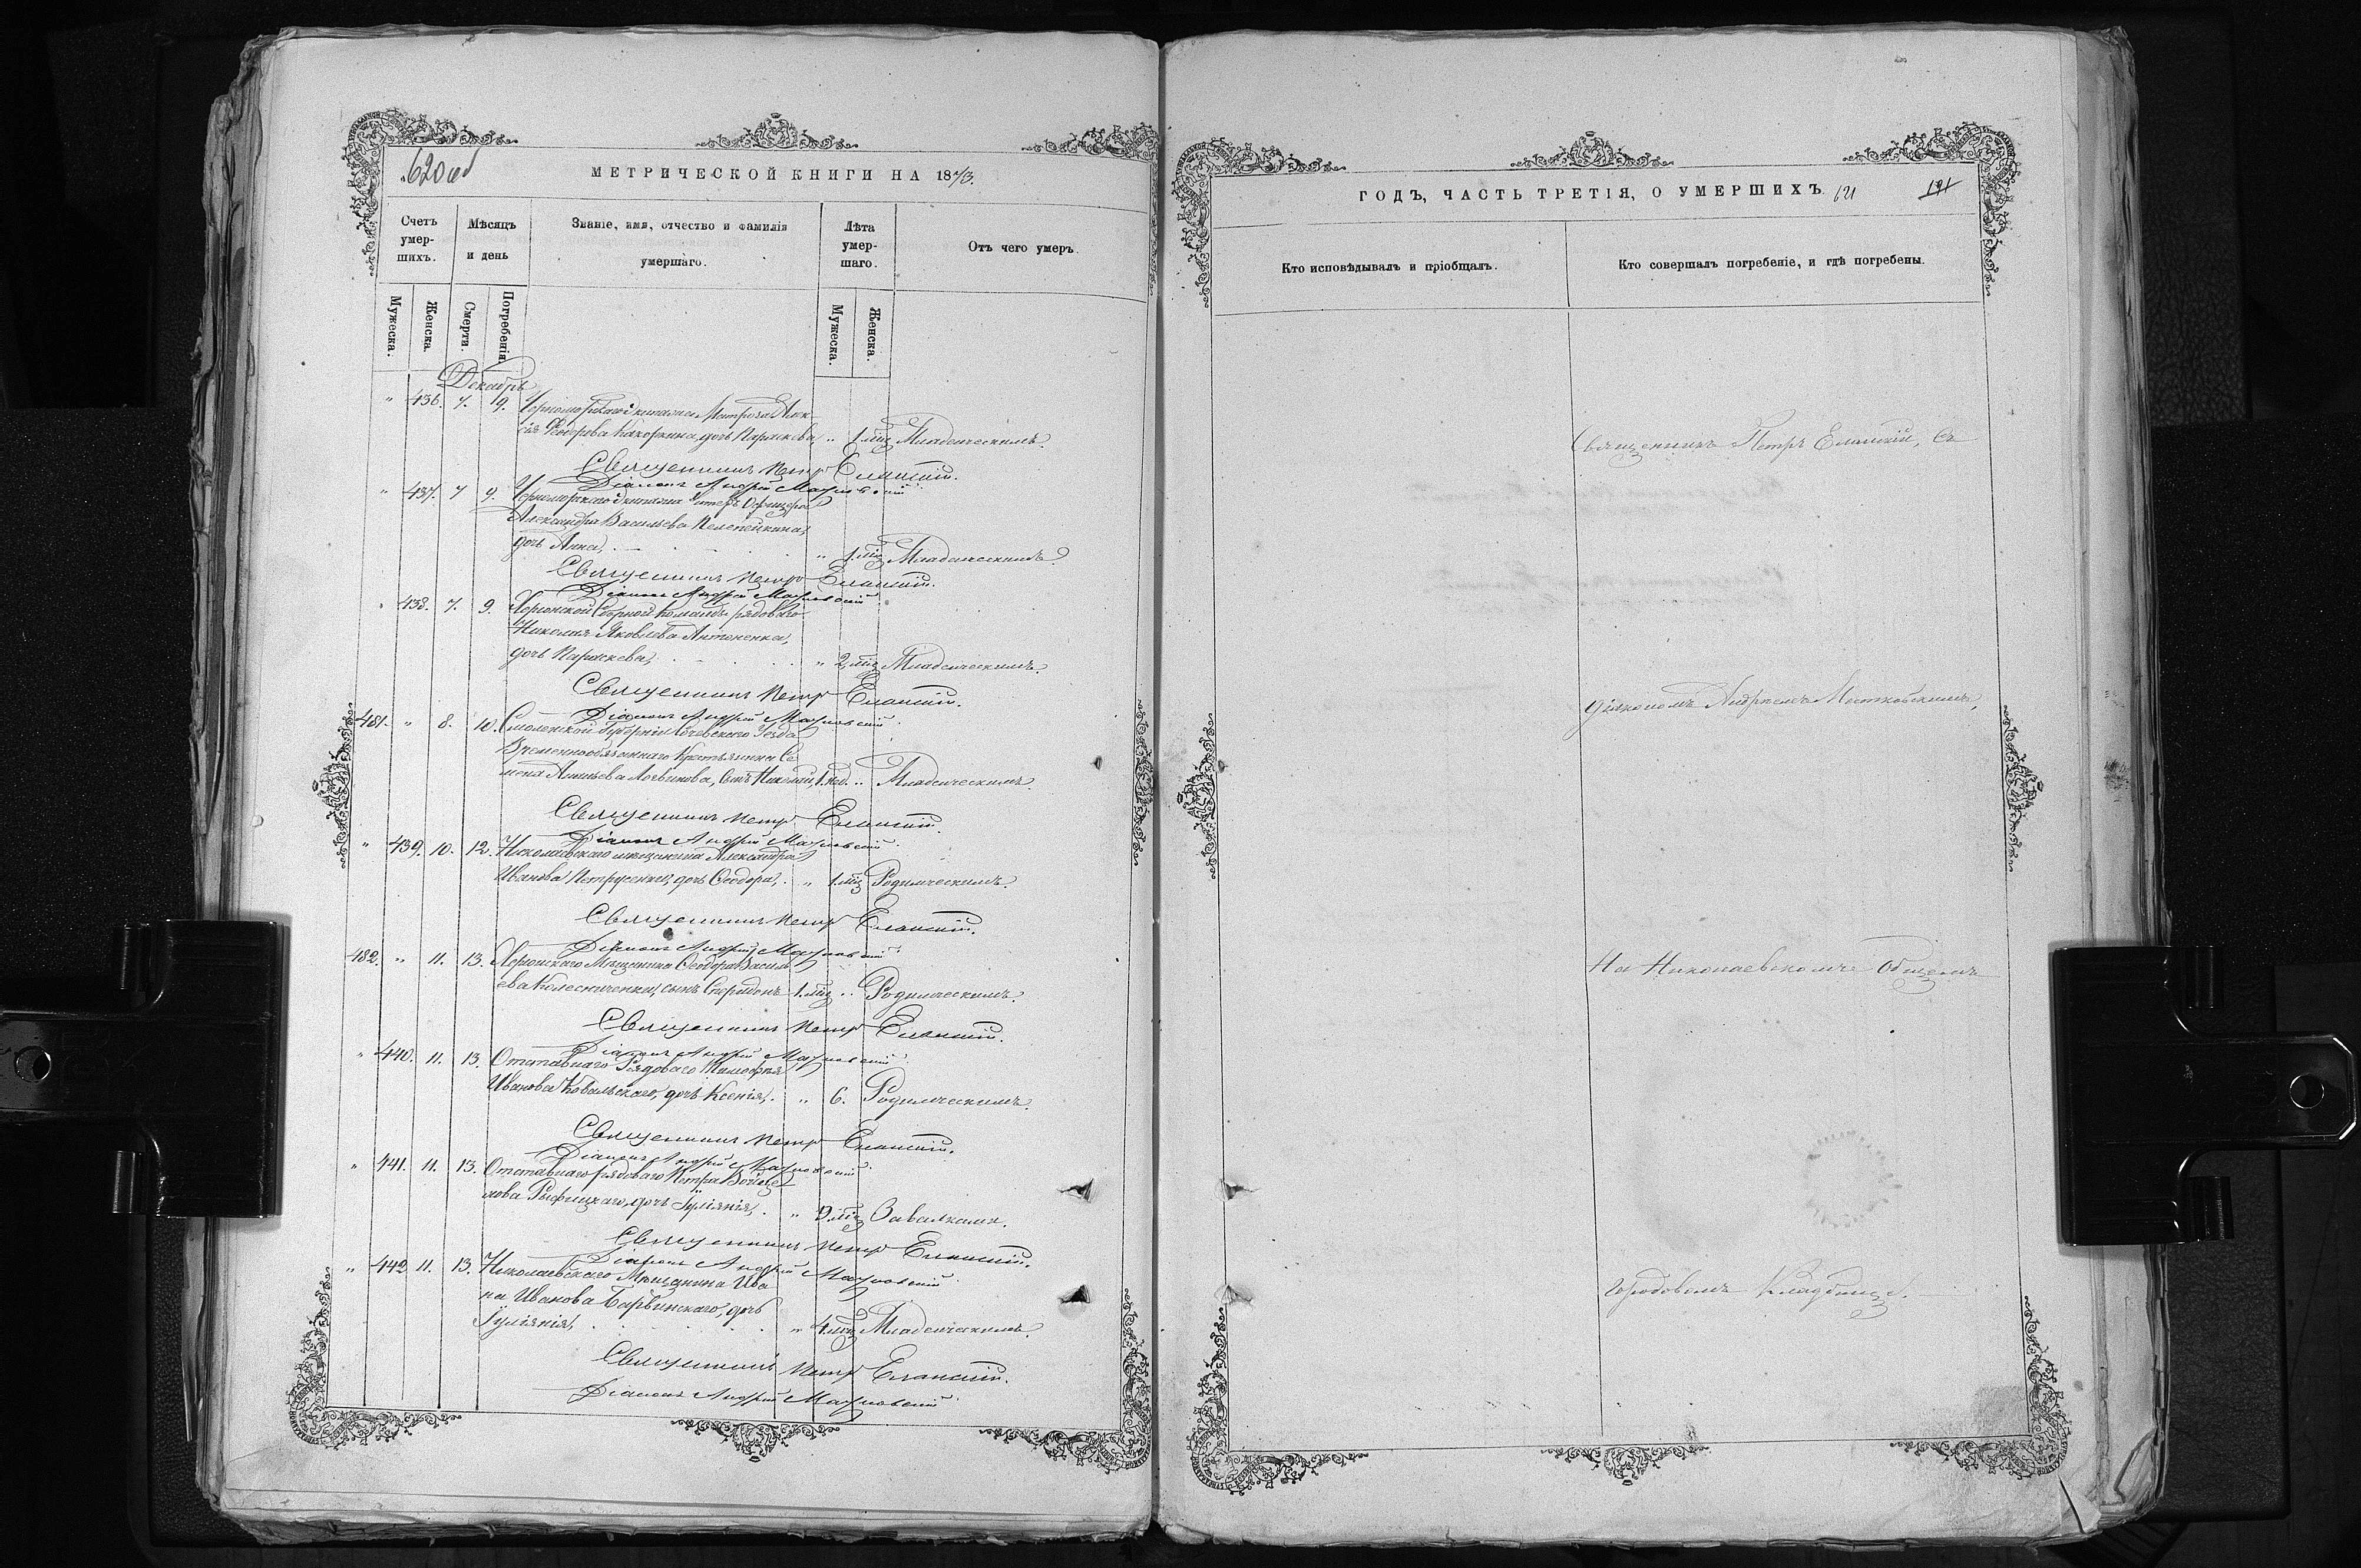 620 об
МЕТРИЧЕСКОЙ КНИГИ НА 1873.
Счетъ умер-шихъ.
Мѣсяцъ и день
Званіе, имя, отчество и фамилія умершаго.
Лѣта умер-шаго.
Отъ чего умеръ
Мужеска. Женска. Смерти. Погребенія Мужеска Женска.
Декабрь
" 436. 7. 9. Черноморскаго экипажа Матроза Алек-
сія Ѳедорова дочь Параскева, " 1. мѣс Младенческимъ.
Священникъ Петръ Еланскій.
Діаконъ Андрей
" 437. 7 9. Черноморскаго экипажа Унтеръ Офицера
Александра Васильева
дочь Анна, " 1. мѣс Младенческимъ.
Священникъ Петръ Еланскій.
Діаконъ Андрей
" 438. 7. 9. Херсонской команды рядоваго
Николая Яковлева Антоненка,
дочь Параскева, " 2. мѣс Младенческимъ.
Священникъ Петръ Еланскій.
Діаконъ Андрей
481. " 8. 10. Смоленской Губерніи Сычевскаго Уѣзда
Временнообязаннаго Крестьянина Се
мена Логвинова, сынъ Николай, 1. нед. " Младенческимъ.
Священникъ Петръ Еланскій.
Діаконъ Андрей
" 439. 10. 12. Николаевскаго мѣщанина Александра
Иванова Петрусенка, дочь Ѳеодора, " 1. мѣс Родимческимъ.
Священникъ Петръ Еланскій.
Діаконъ Андрей
482. " 11. 13. Херсонскаго Мѣщанина Ѳеодора Василь
ева Колесниченка, сынъ Спиридонъ 1. мѣс " Родимческимъ.
Священникъ Петръ Еланскій.
Діаконъ Андрей
" 440. 11. 13. Отставнаго Рядоваго Тимофея
Иванова Ковальскаго, дочь Ксенія, " 6. Родимческимъ.
Священникъ Петръ Еланскій.
Діаконъ Андрей
" 441. 11. 13. Отставнаго рядоваго Петра Войце
хова дочь Іуліянія, " 9. мѣс
Священникъ Петръ Еланскій.
Діаконъ Андрей
" 442 11. 13. Николаевскаго Мѣщанина Ива
на Иванова Барвинскаго, дочь
Іуліянія, " 4. мѣс Младенческимъ.
Священникъ Петръ Еланскій.
Діаконъ Андрей
ГОДЪ, ЧАСТЬ ТРЕТІЯ, О УМЕРШИХЪ. 621
121
Кто исповѣдывалъ и пріобщалъ.
Кто совершалъ погребеніе, и гдѣ погребены.
Священникъ Петръ Еланскій, съ
діакономъ Андреемъ
На Николаевскомъ Общемъ
городовомъ Кладбищѣ.